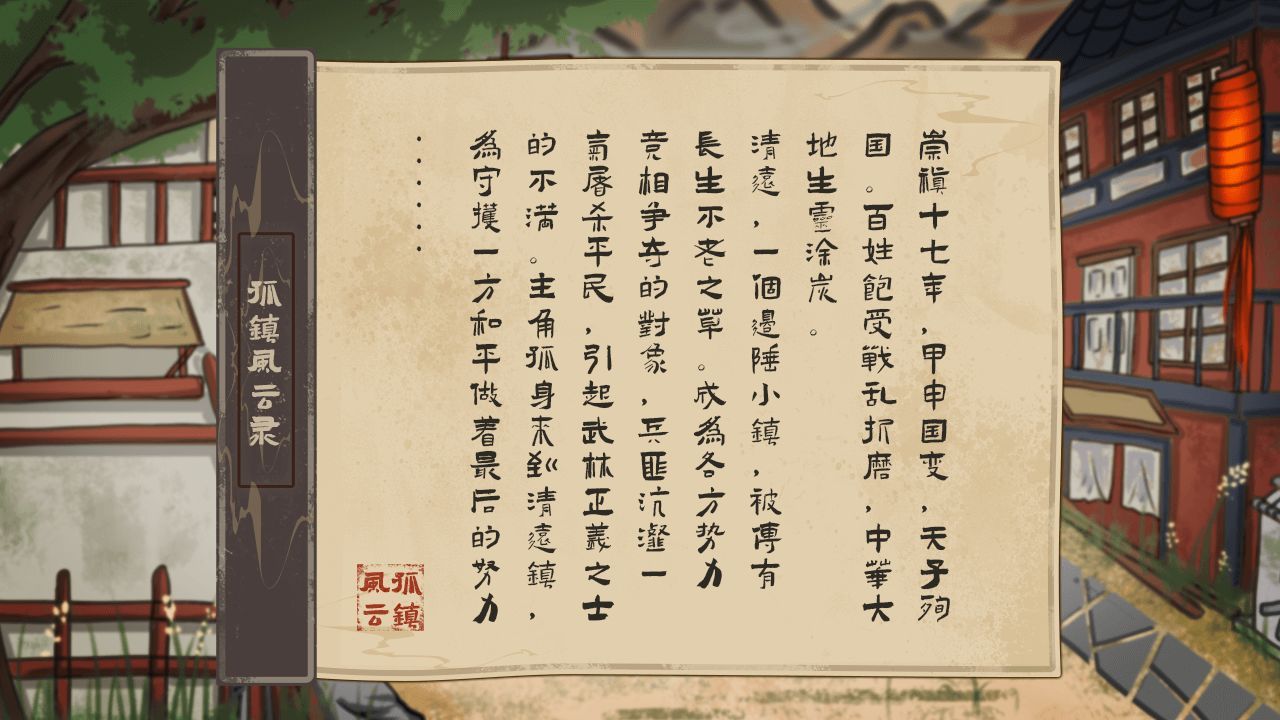 崇禎十七年，甲申国变，天子殉
国。百姓飽受戰乱折磨，中華大
地生靈涂炭。
清遠，一個邊陲小鎮，被傳有
長生不老之草。成為各方势力
竞相爭夺的對象，兵匪沆瀣一
氣屠杀平民，引起武林正義之士
的不满。主角孤身来到清遠鎮，
為守擭一方和平做着最后的努力
······
孤鎮風云录
孤鎮
風云